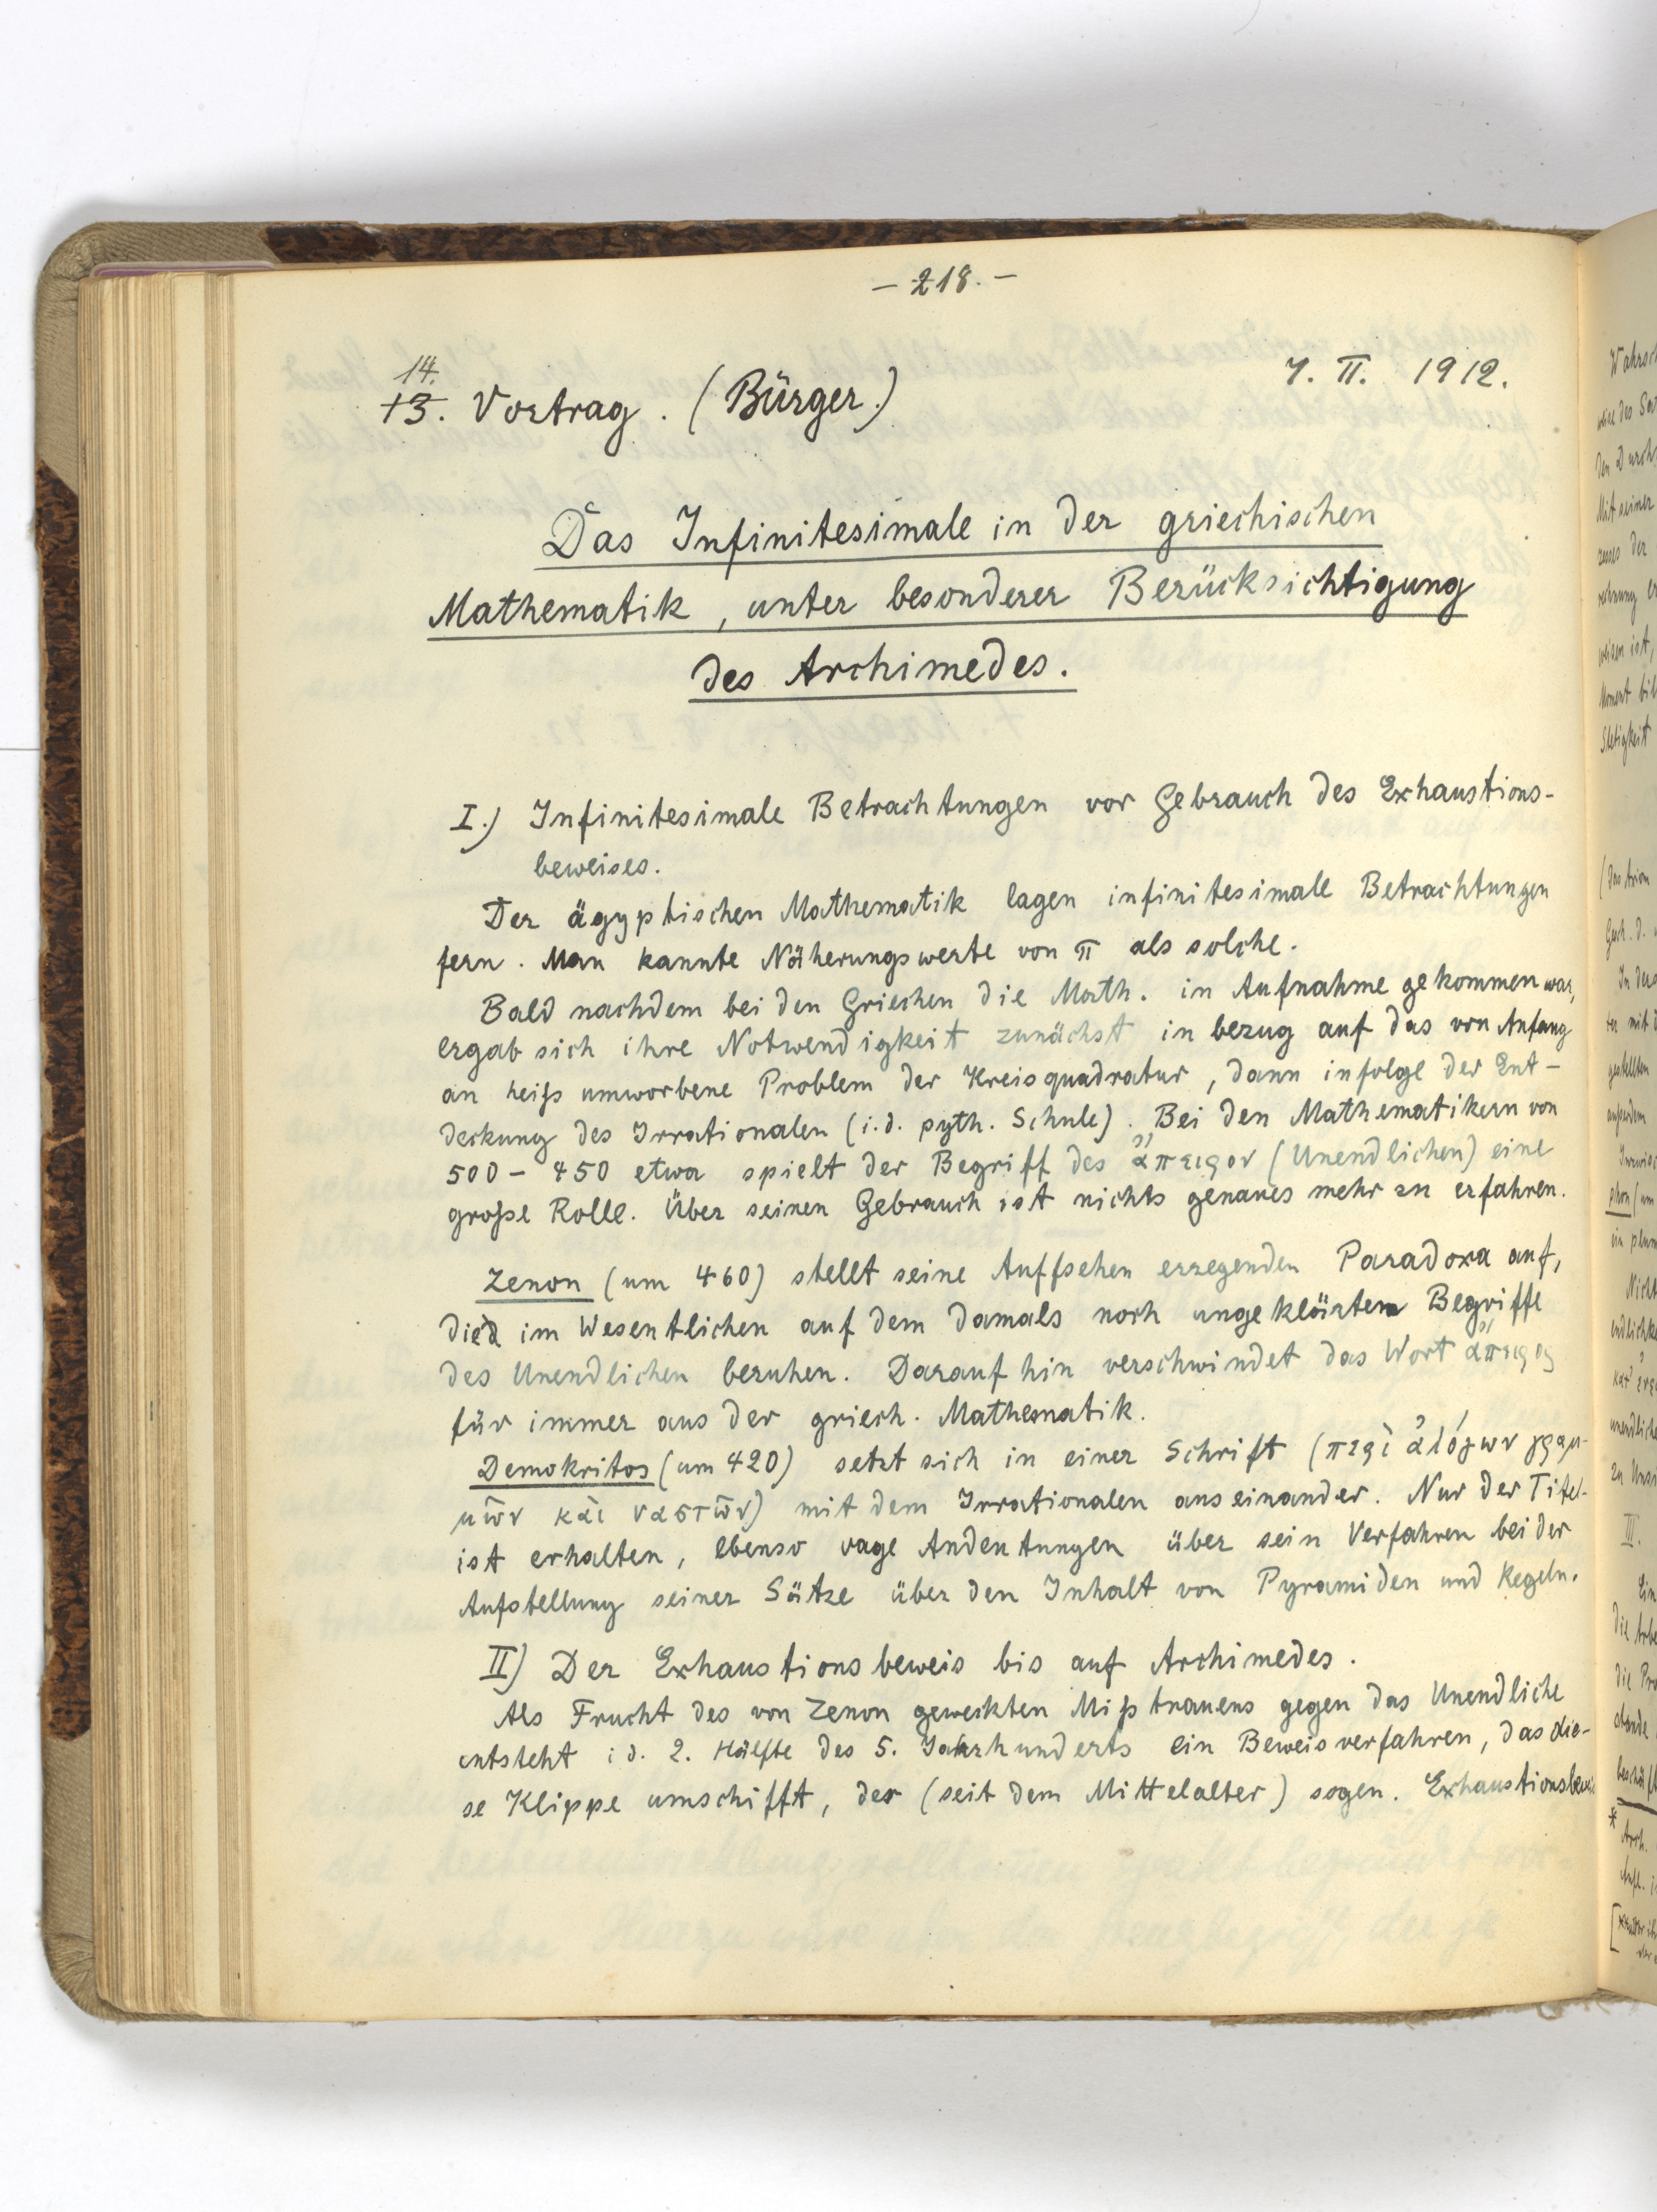 — 218. —
14.
13. Vortrag. (Bürger.)
7. II. 1912.
Das Infinitesimale in der griechischen
Mathematik, unter besonderer Berücksichtigung
des Archimedes.
I.) Infinitesimale Betrachtungen vor Gebrauch des Exhaustions-
beweises.
Der ägyptischen Mathematik lagen infinitesimale Betrachtungen
fern. Man kannte Näherungswerte von π als solche.
Bald nachdem bei den Griechen die Math. in Aufnahme gekommen war,
ergab sich ihre Notwendigkeit zunächst in bezug auf das von Anfang
an heiß umworbene Problem der Kreisquadratur, dann infolge der Ent-
deckung des Irrationalen (i.d. pyth. Schule). Bei den Mathematikern von
500 - 450 etwa spielt der Begriff des ἄπειρον (Unendlichen) eine
große Rolle. Über seinen Gebrauch ist nichts genaues mehr zu erfahren.
Zenon (um 460) stellt seine Auffsehen erregenden Paradoxa auf,
die im Wesentlichen auf dem damals noch ungeklärten Begriffe
des Unendlichen beruhen. Daraufhin verschwindet das Wort ἄπειρον
für immer aus der griech. Mathematik.
Demokritos (um 420) setzt sich in einer Schrift (περὶ ἀλόγων γραμ-
μῶν καὶ ναστῶν) mit dem Irrationalen auseinander. Nur der Titel
ist erhalten, ebenso vage Andeutungen über sein Verfahren bei der
Aufstellung seiner Sätze über den Inhalt von Pyramiden und Kegeln.
II) Der Exhaustionsbeweis bis auf Archimedes.
Als Frucht des von Zenon geweckten Mißtrauens gegen das Unendliche
entsteht i d. 2. Hälfte des 5. Jahrhunderts ein Beweisverfahren, das die-
se Klippe umschifft, der (seit dem Mittelalter) sogen. Exhaustionsbeweis